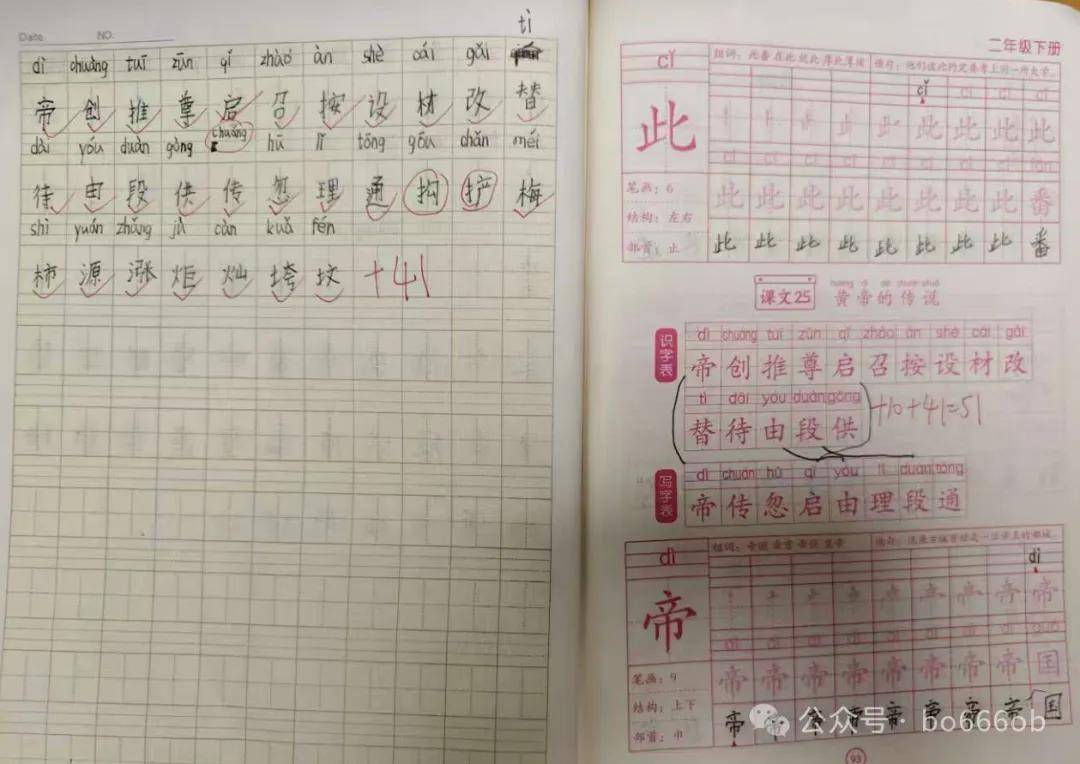 Date. NO.
tì
dì chuàng tuī zūn qǐ zhào àn shè cái gǎi
帝 创 推 尊 启 召 按 设 材 改 替
dài yóu duàn gōng chuáng hū lǐ tōng gōu chǎn méi
待 由 段 供 传 忽 理 通 构 护 梅
shì yuán zhǎng jù càn kuǎ fén
柿 源 涨 炬 灿 垮 坟 +41
二年级下册
cǐ
组词：
造句：
cǐ cǐ cǐ cǐ
此
笔画：6
结构：左右
部首：止
此 此 此 此 此 此 此 此 番
此 此 此 此 此 此 此 此 番
课文25 黄帝的传说
识字表
dì chuàng tuī zūn qǐ zhào àn shè cái gǎi
帝 创 推 尊 启 召 按 设 材 改
tì dài yóu duàn gōng
替 待 由 段 供 +10+41=51
写字表
dì chuán hū qǐ yóu lǐ duàn tōng
帝 传 忽 启 由 理 段 通
dì
组词：
造句：
dì
帝
笔画：9
结构：上下
部首：巾
帝 帝 帝 帝 帝 帝 帝 国
帝 帝 帝 帝 帝 帝 帝 国
93
公众号 · bo666ob